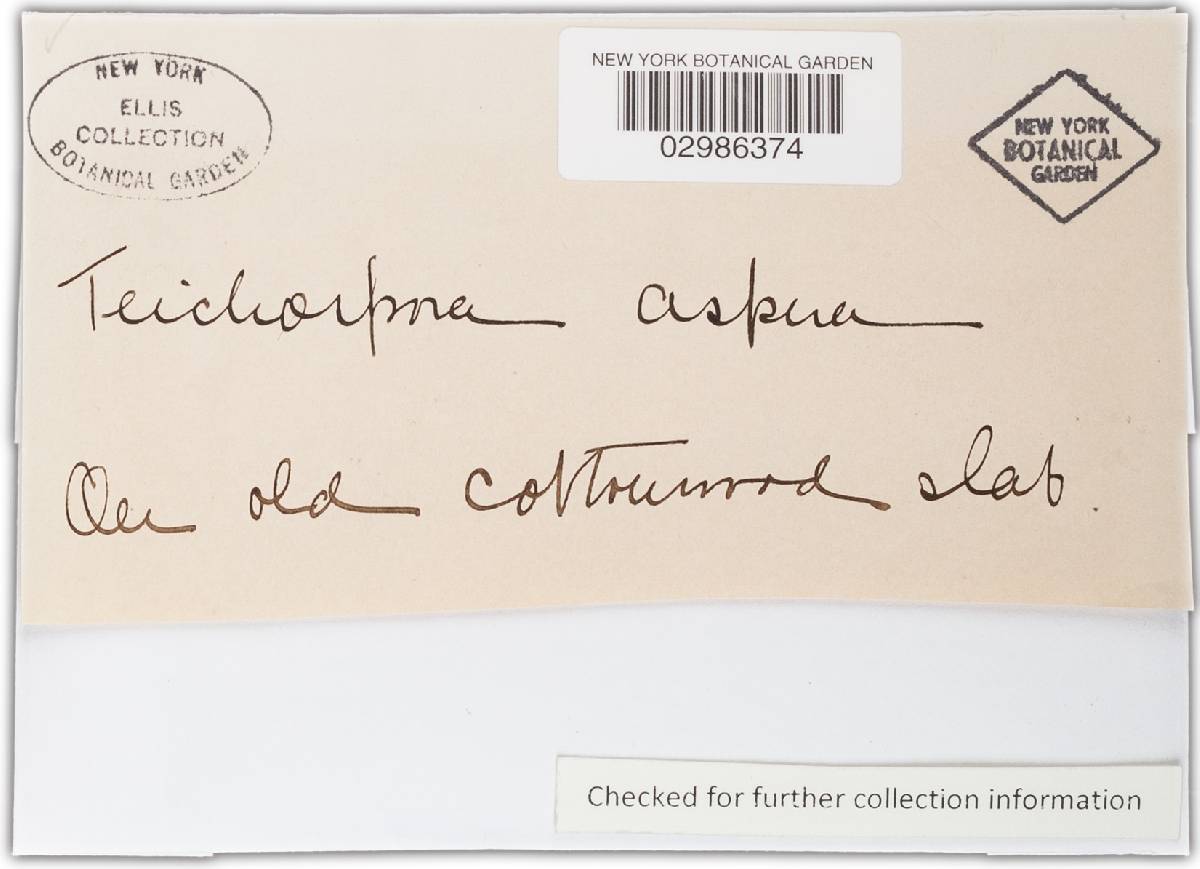 NEW YORK
ELLIS
COLLECTION
BOTANICAL GARDEN
NEW YORK BOTANICAL GARDEN
02986374
NEW YORK
BOTANICAL
GARDEN
Teichospora aspera
On old cottonwood slab.
Checked for further collection information